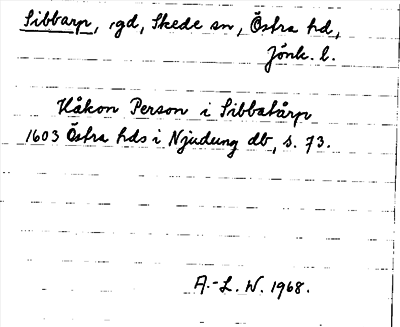 Sibbarp, gd, Skede sn, Östra hd,
Jönk. l.
Håkon Person i Sibbatårp
1603 Östra hds i Njudung db, s. 73.
A.-L. W. 1968.